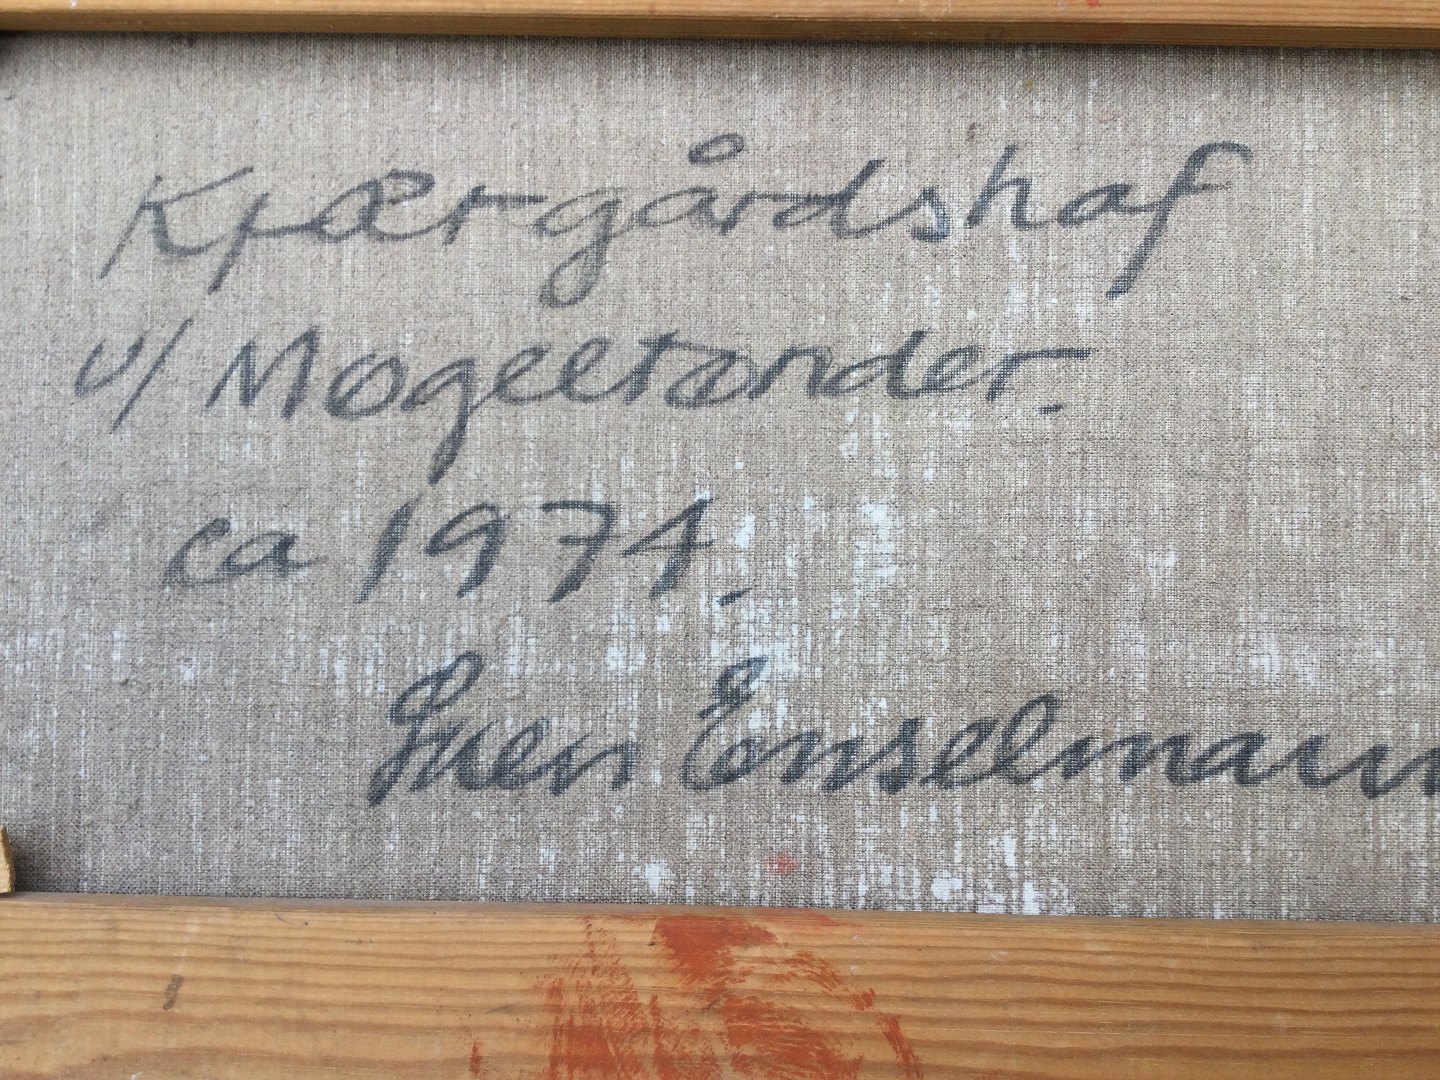 Kjærgårdshaf
v/ Møgeltønder.
ca 1974.
Sven Enselmann